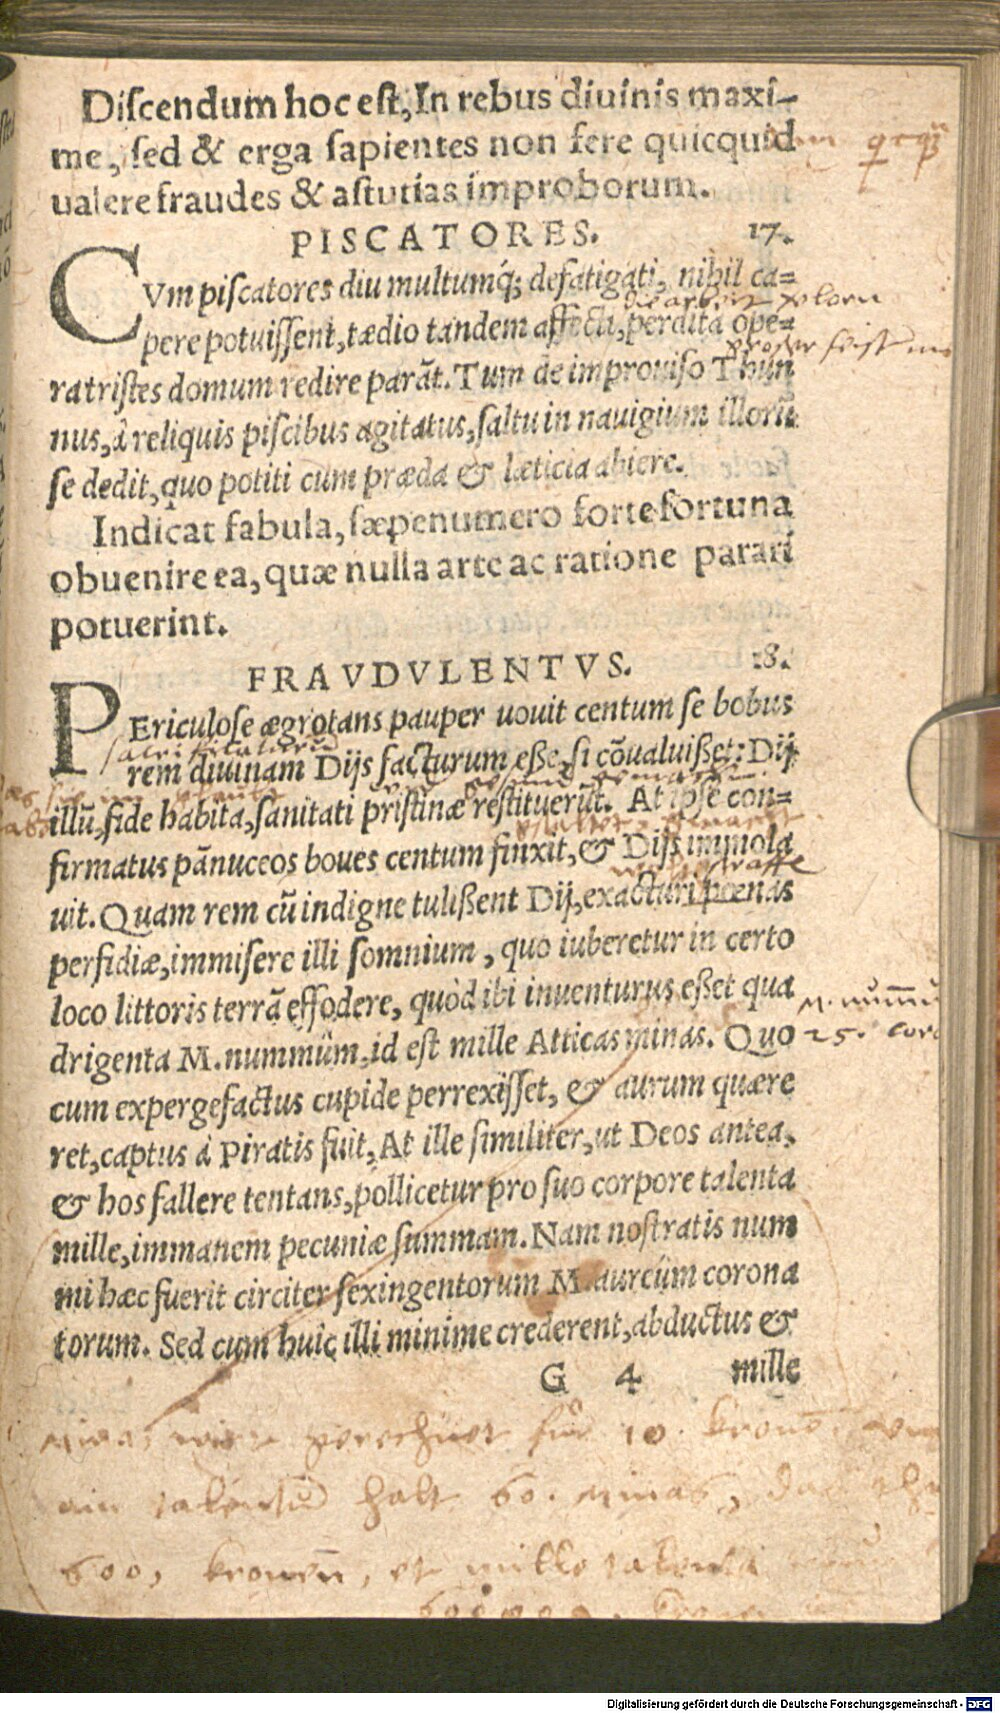 Diſcendum hoc eſt, In rebus diuinis maxi-
me, ſed & erga ſapientes non fere quicquid
ualere fraudes & aſtutias improborum.
PISCATORES. 17.
CVm piſcatores diu multumq́; defatigati, nihil ca=
pere potuiſſent, tædio tandem affecti, perdita ope=
ra triſtes domum redire parāt. Tum de improuiſo Thun
nus, à reliquis piſcibus agitatus, ſaltu in nauigium illorū
ſe dedit, quo potiti cum præda & læticia abiere.
Indicat fabula, ſæpenumero forte fortuna
obuenire ea, quæ nulla arte ac ratione parari
potuerint.
FRAVDVLENTVS. 18.
PEriculoſe ægrotans pauper uouit centum ſe bobus
rem diuinam Dijs facturum eſſe, ſi cōualuiſſet: Dij
illū, fide habita, ſanitati priſtinæ reſtituerūt. At ipſe con=
firmatus pānuceos boues centum finxit, & Dijs immola
uit. Quam rem cū indigne tuliſſent Dij, exacturi pœnas
perfidiæ, immiſere illi ſomnium, quo iuberetur in certo
loco littoris terrā effodere, quòd ibi inuenturus eſſet qua
drigenta M. nummûm, id eſt mille Atticas minas. Quo
cum expergefactus cupide perrexiſſet, & aurum quære
ret, captus à Piratis fuit, At ille ſimiliter, ut Deos antea,
& hos fallere tentans, pollicetur pro ſuo corpore talenta
mille, immanem pecuniæ ſummam. Nam noſtratis num
mi hæc fuerit circiter ſexingentorum M. aureûm corona
torum. Sed cum huic illi minime crederent, abductus &
G 4 mille
gerechnet für 10. kronē
ain talentū halt 60. minas,
600, kronen, et mille talenta
Digitalisierung gefördert durch die Deutsche Forschungsgemeinschaft - DFG